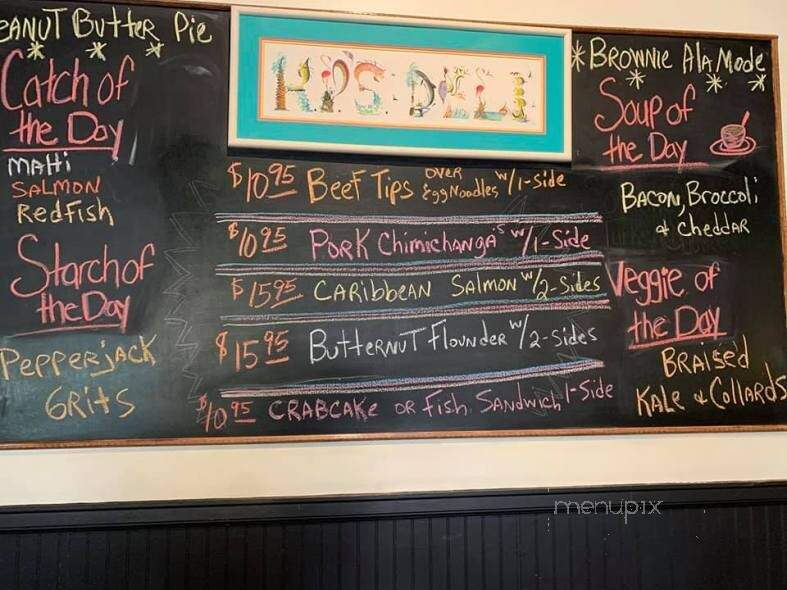 PEANUT BUTTER PIE
Catch of
the Day
MAHI
SALMON
REDFISH
Starch of
the Day
PEPPERJACK
GRITS
H.P.'S. DELI
$10.95 BEEF TIPS OVER EggNoodles w/1-side
$10.95 PORK Chimichanga's w/1-Side
$15.95 CARIBBEAN SALMON w/2-Sides
$15.95 BUTTERNUT FLOUNDER w/2-sides
$10.95 CRABCAKE OR FISH SANDWICH 1-Side
BROWNIE ALA MODE
Soup of
the Day
BACON, BROCCOLI
& CHEDDAR
Veggie of
the Day
BRAISED
KALE & COLLARDS
menupix